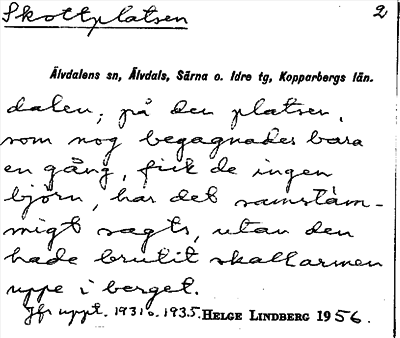 Skottplatsen
2
Älvdalens sn, Älvdals, Särna o. Idre tg, Kopparbergs län.
dalen; på den platsen,
som nog begagnades bara
en gång, fick de ingen
björn, har det samstäm-
migt sagts, utan den
hade brutit skallarmen
uppe i berget.
Jfr uppt. 1931 o. 1935. HELGE LINDBERG 1956.